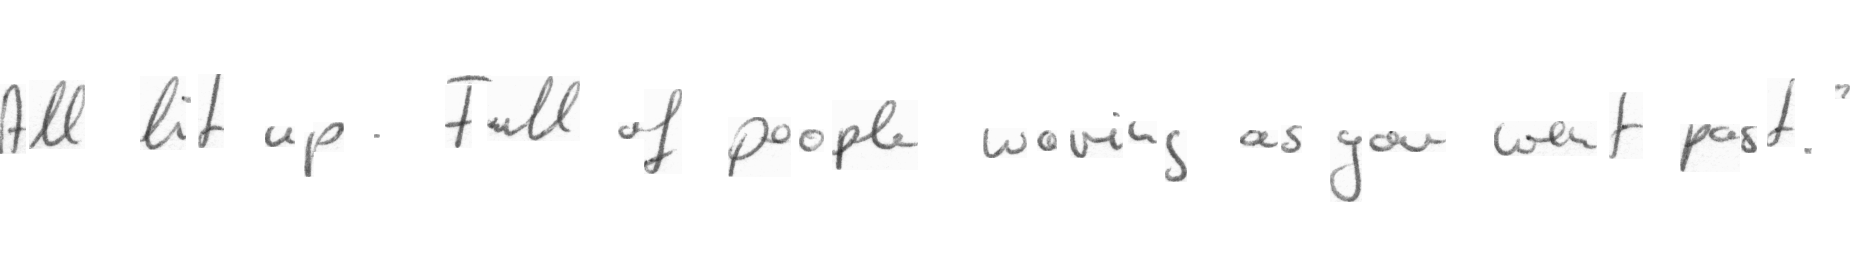 All lit up. Full of people waving as you went past."